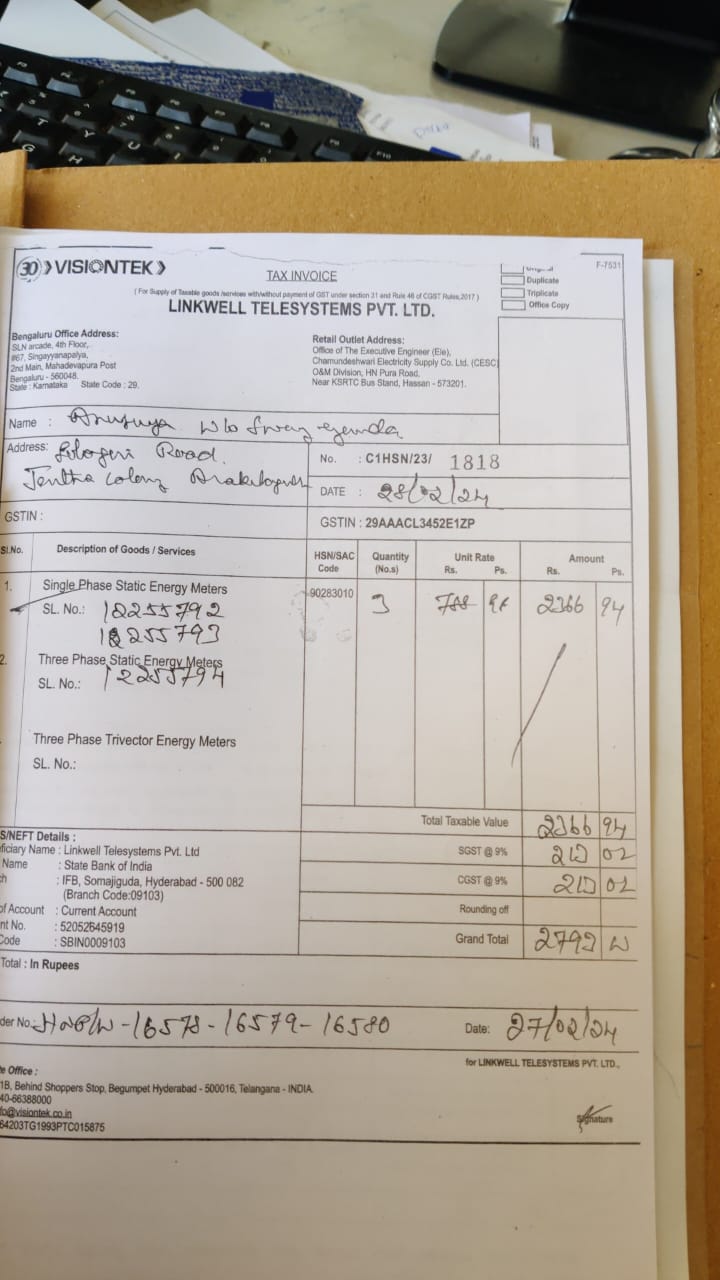 30 VISIONTEK
TAX INVOICE
F-7531
Duplicate
Triplicate
Office Copy
( For Supply of Taxable goods /services with/without payment of GST under section 31 and Rule 46 of CGST Rules,2017 )
LINKWELL TELESYSTEMS PVT. LTD.
Bengaluru Office Address:
SLN arcade, 4th Floor,
#67, Singayyanapalya,
2nd Main, Mahadevapura Post
Bengaluru - 560048.
State : Karnataka State Code : 29.
Retail Outlet Address:
Office of The Executive Engineer (Ele),
Chamundeshwari Electricity Supply Co. Ltd. (CESC)
O&M Division, HN Pura Road,
Near KSRTC Bus Stand, Hassan - 573201.
Name : Anusuya w/o
Address: Road.
No. : C1HSN/23/ 1818
DATE : 28/02/24
GSTIN :
GSTIN : 29AAACL3452E1ZP
Sl.No. Description of Goods / Services HSN/SAC Code Quantity (No.s) Unit Rate Rs. Ps. Amount Rs. Ps.
1. Single Phase Static Energy Meters 90283010 3 788 98 2366 94
SL. No.: 12255792
12255793
2. Three Phase Static Energy Meters
SL. No.: 12255794
Three Phase Trivector Energy Meters
SL. No.:
Total Taxable Value 2366 94
SGST @ 9% 213 02
CGST @ 9% 213 02
Rounding off
Grand Total 2793
S/NEFT Details :
ficiary Name : Linkwell Telesystems Pvt. Ltd
Name : State Bank of India
ch : IFB, Somajiguda, Hyderabad - 500 082
(Branch Code:09103)
of Account : Current Account
nt No. : 52052645919
Code : SBIN0009103
Total : In Rupees
der No.: -16578-16579-16580 Date: 27/02/24
for LINKWELL TELESYSTEMS PVT. LTD.,
e Office :
1B, Behind Shoppers Stop, Begumpet Hyderabad - 500016, Telangana - INDIA.
40-66388000
fo@visiontek.co.in
64203TG1993PTC015875
Signature